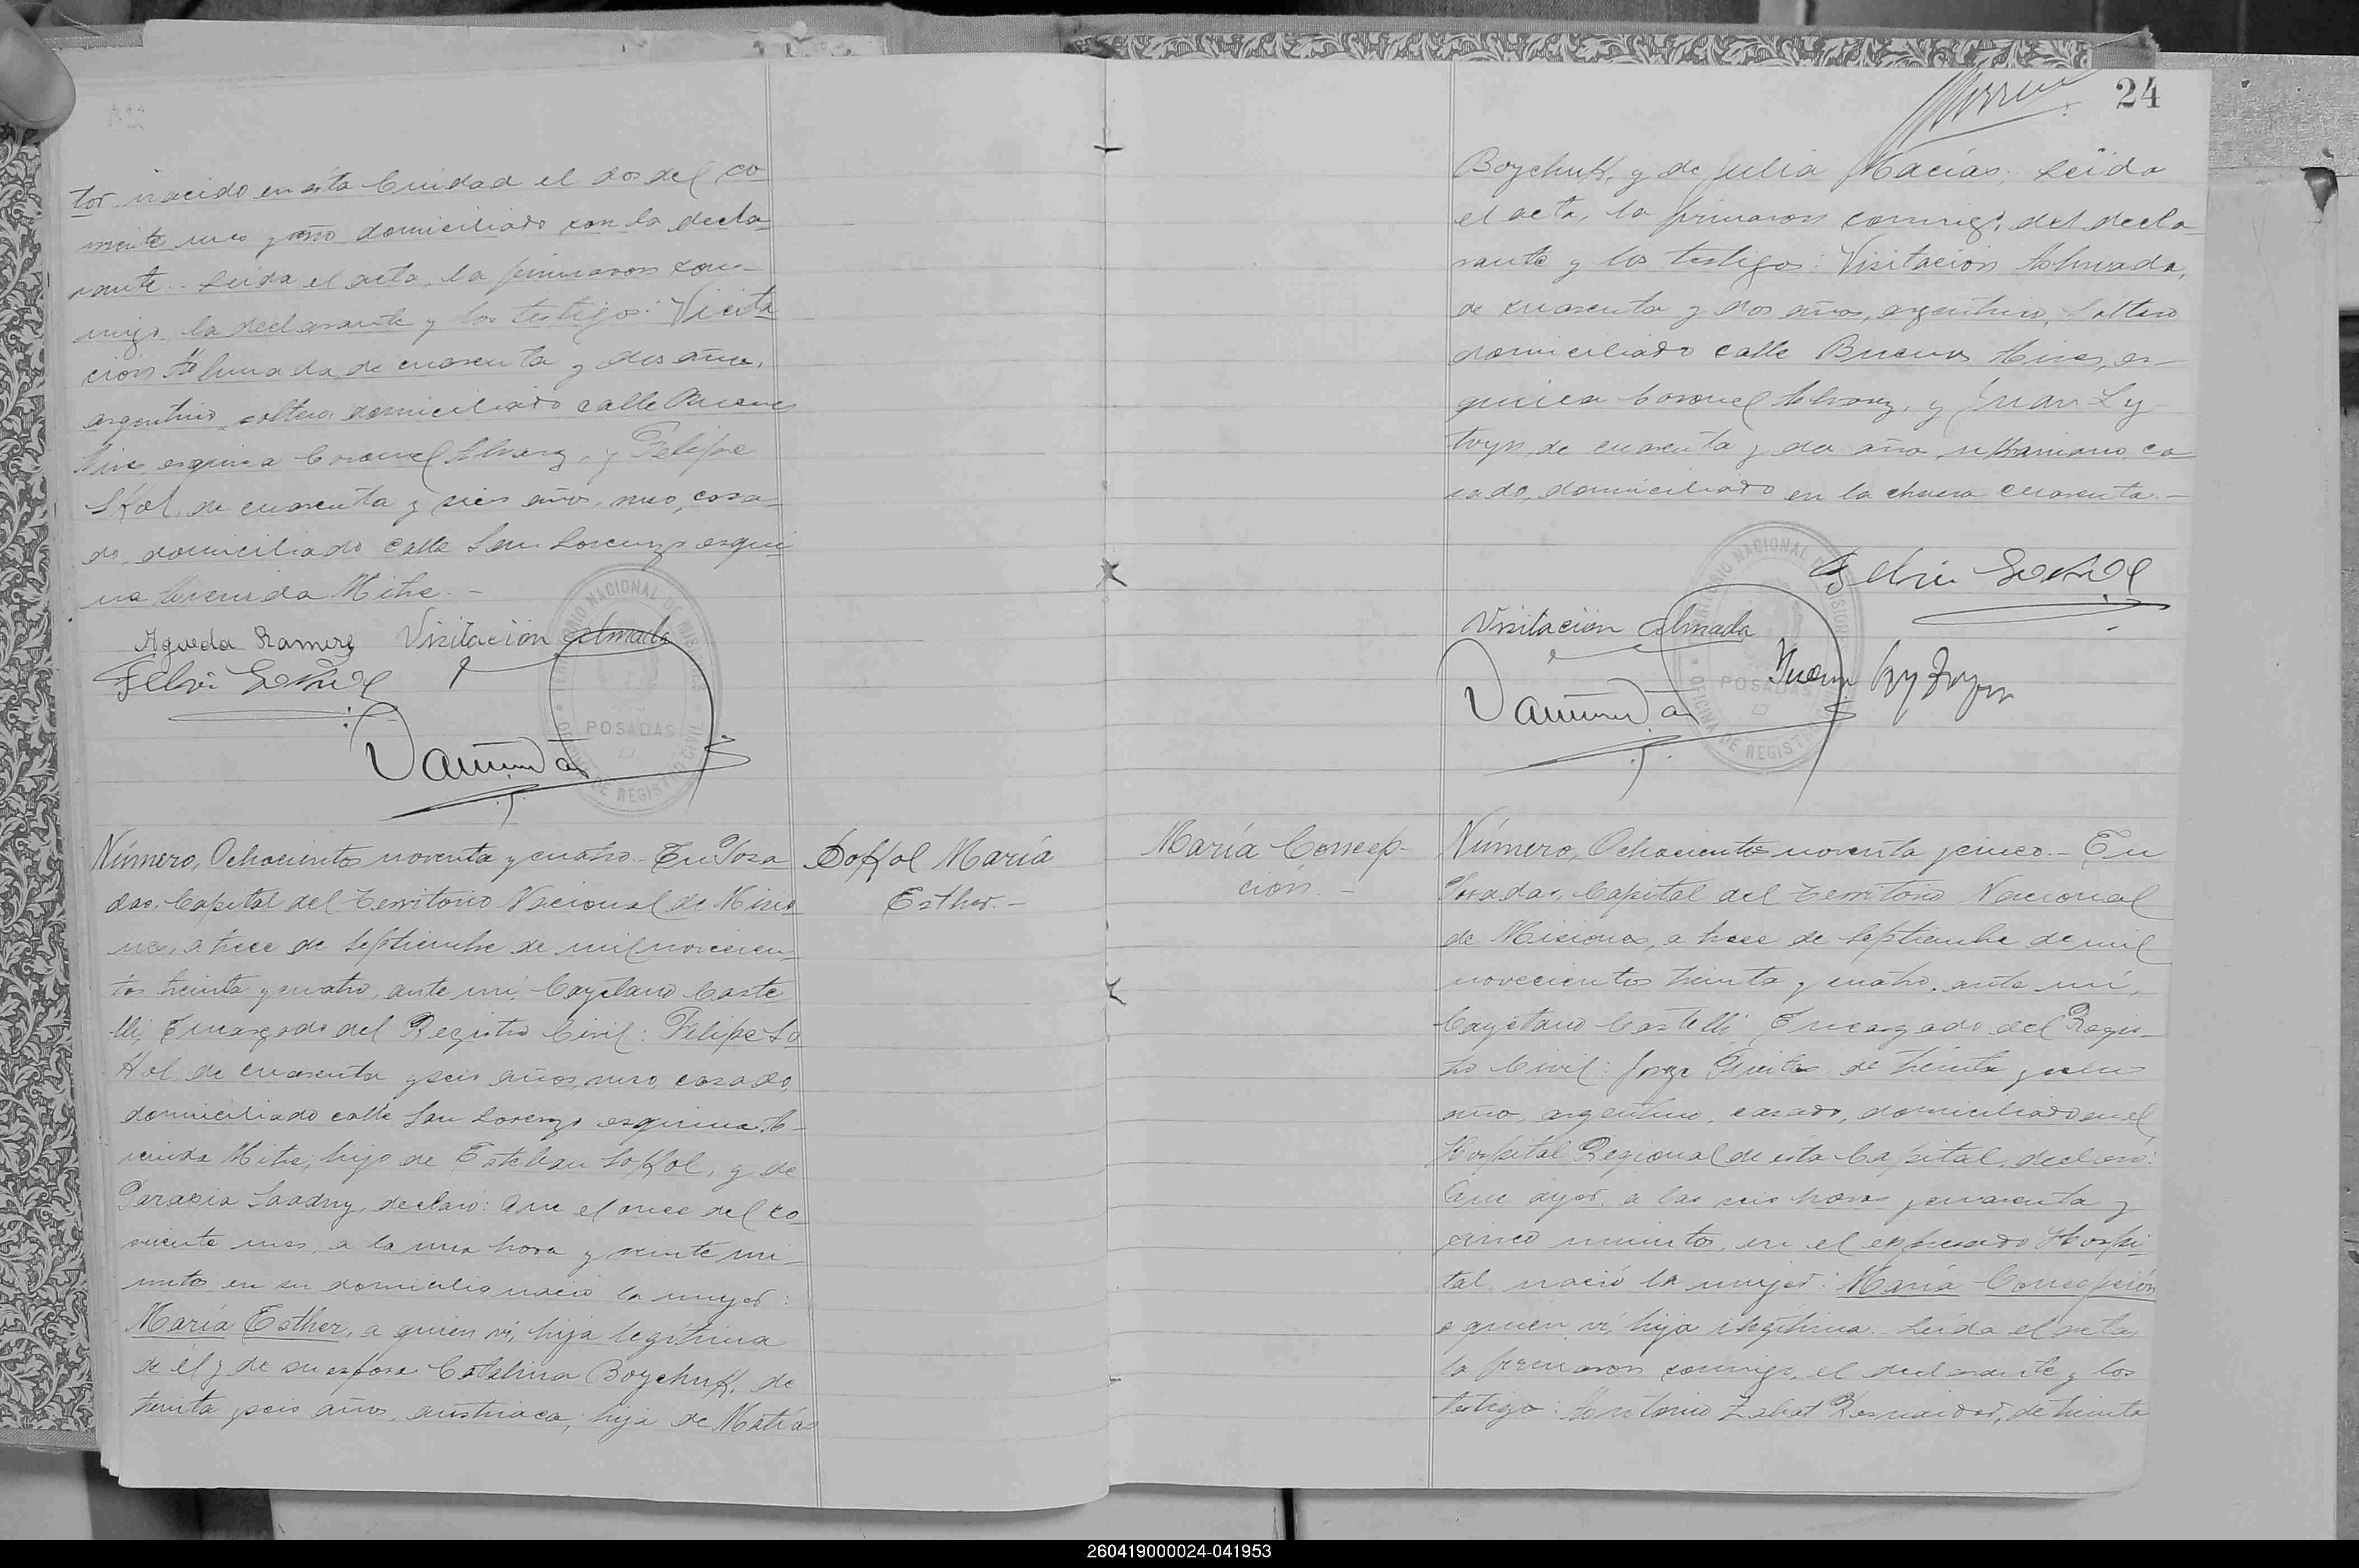 tor, nacido en ésta Ciudad el dos del co-
rriente mes y año, domiciliado con la decla-
rante.- Leida el acta, la firmaron con-
migo, la declarante y los testigos: Visita-
ción Almada, de cuarenta y dos años,
argentino, soltero, domiciliado calle Buenos
Aires esquina Coronel Alvarez, y Felipe
Skol, de cuarenta y seis años, ruso, casa-
do, domiciliado calle San Lorenzo esqui-
na Avenida Mitre.-
Agueda Ramirez Visitación Almada
TERRITORIO NACIONAL DE MISIONES
POSADAS
OFICINA DE REGISTRO CIVIL
Número, Ochocientos noventa y cuatro.- En Posa-
das, Capital del Territorio Nacional de Misio-
nes, a trece de Septiembre de mil novecien-
tos treinta y cuatro, ante mí, Cayetano Caste-
lli, Encargado del Registro Civil: Felipe So-
Kol, de cuarenta y seis años, ruso, casado,
domiciliado calle San Lorenzo esquina A-
venida Mitre, hijo de Esteban SoKol, y de
Parasia, declaró: Que el once del co-
rriente mes, a la una hora y veinte mi-
nutos en su domicilio nació la mujer:
María Esther, a quien ví, hija legítima
de él y de su esposa Catalina BoychuK, de
treinta y seis años, austriaca, hija de Matías
SoKol María
Esther.-
24
BoychuK, y de Julia Macías; Leída
el acta, la firmaron conmigo, el decla-
rante y los testigos: Visitación Almada,
de cuarenta y dos años, argentino, soltero
domiciliado calle Buenos Aires, es-
quina Coronel Alvarez, y Juan Ly-
de cuarenta y dos años, uKraniano, ca-
sado, domiciliado en la chacra cuarenta.-
Visitación Almada
Juan
TERRITORIO NACIONAL DE MISIONES
POSADAS
OFICINA DE REGISTRO CIVIL
María Concep-
ción.-
Número, Ochocientos noventa y cinco.- En
Posadas, Capital del Territorio Nacional
de Misiones, a trece de Septiembre de mil
novecientos treinta y cuatro, ante mí,
Cayetano Castelli, Encargado del Regis-
tro Civil: Jorge de treinta y
años, argentino, casado, domiciliado en el
Hospital Regional de ésta Capital, declaró:
Que ayer, a las seis horas y cuarenta y
cinco minutos, en el expresado Hospi-
tal, nació la mujer: María Concepción
a quien ví, hija ilegítima.- Leida el acta,
la firmaron conmigo, el declarante y los
testigos: Antonio de treinta
260419000024-041953